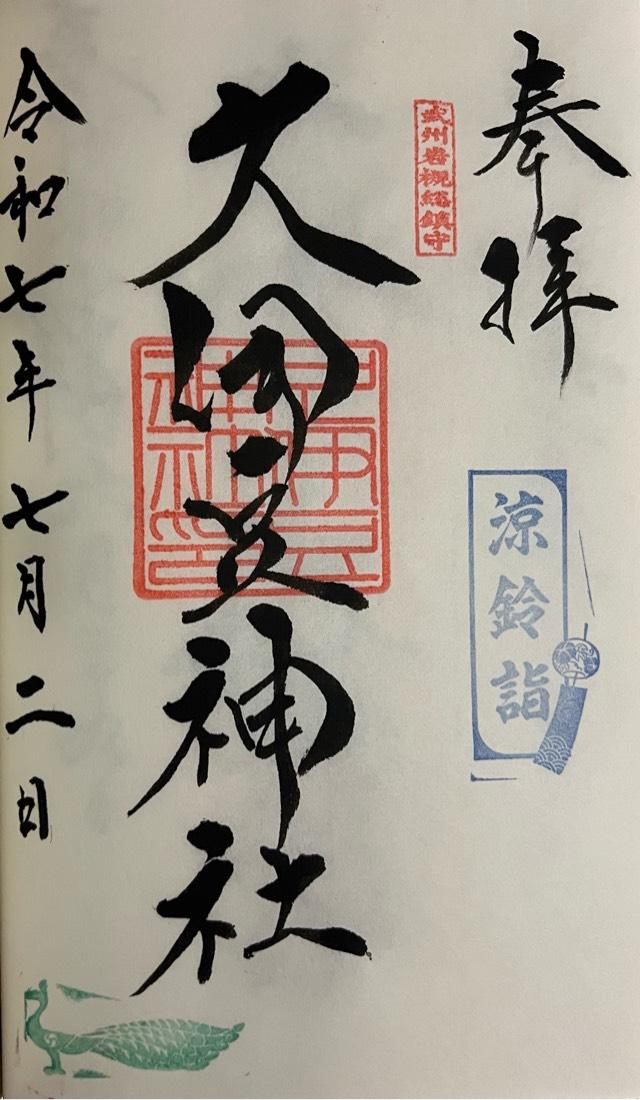 奉拝
武州岩槻総鎮守
涼鈴詣
久伊豆神社
令和七年七月二日